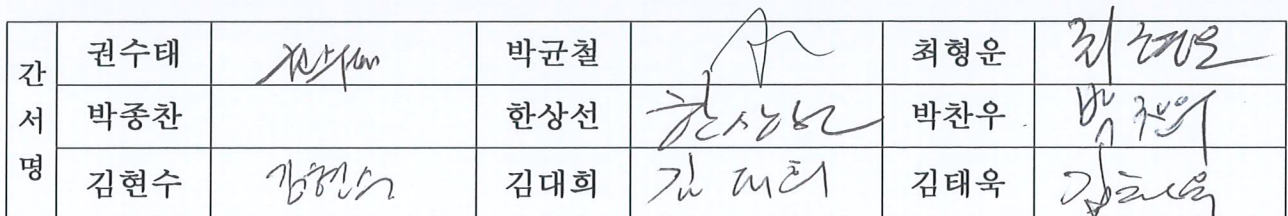 간 서 명
권수태 권수태 박균철 최형운 최형운
박종찬 한상선 한상선 박찬우 박찬우
김현수 김현수 김대희 김대희 김태욱 김태욱